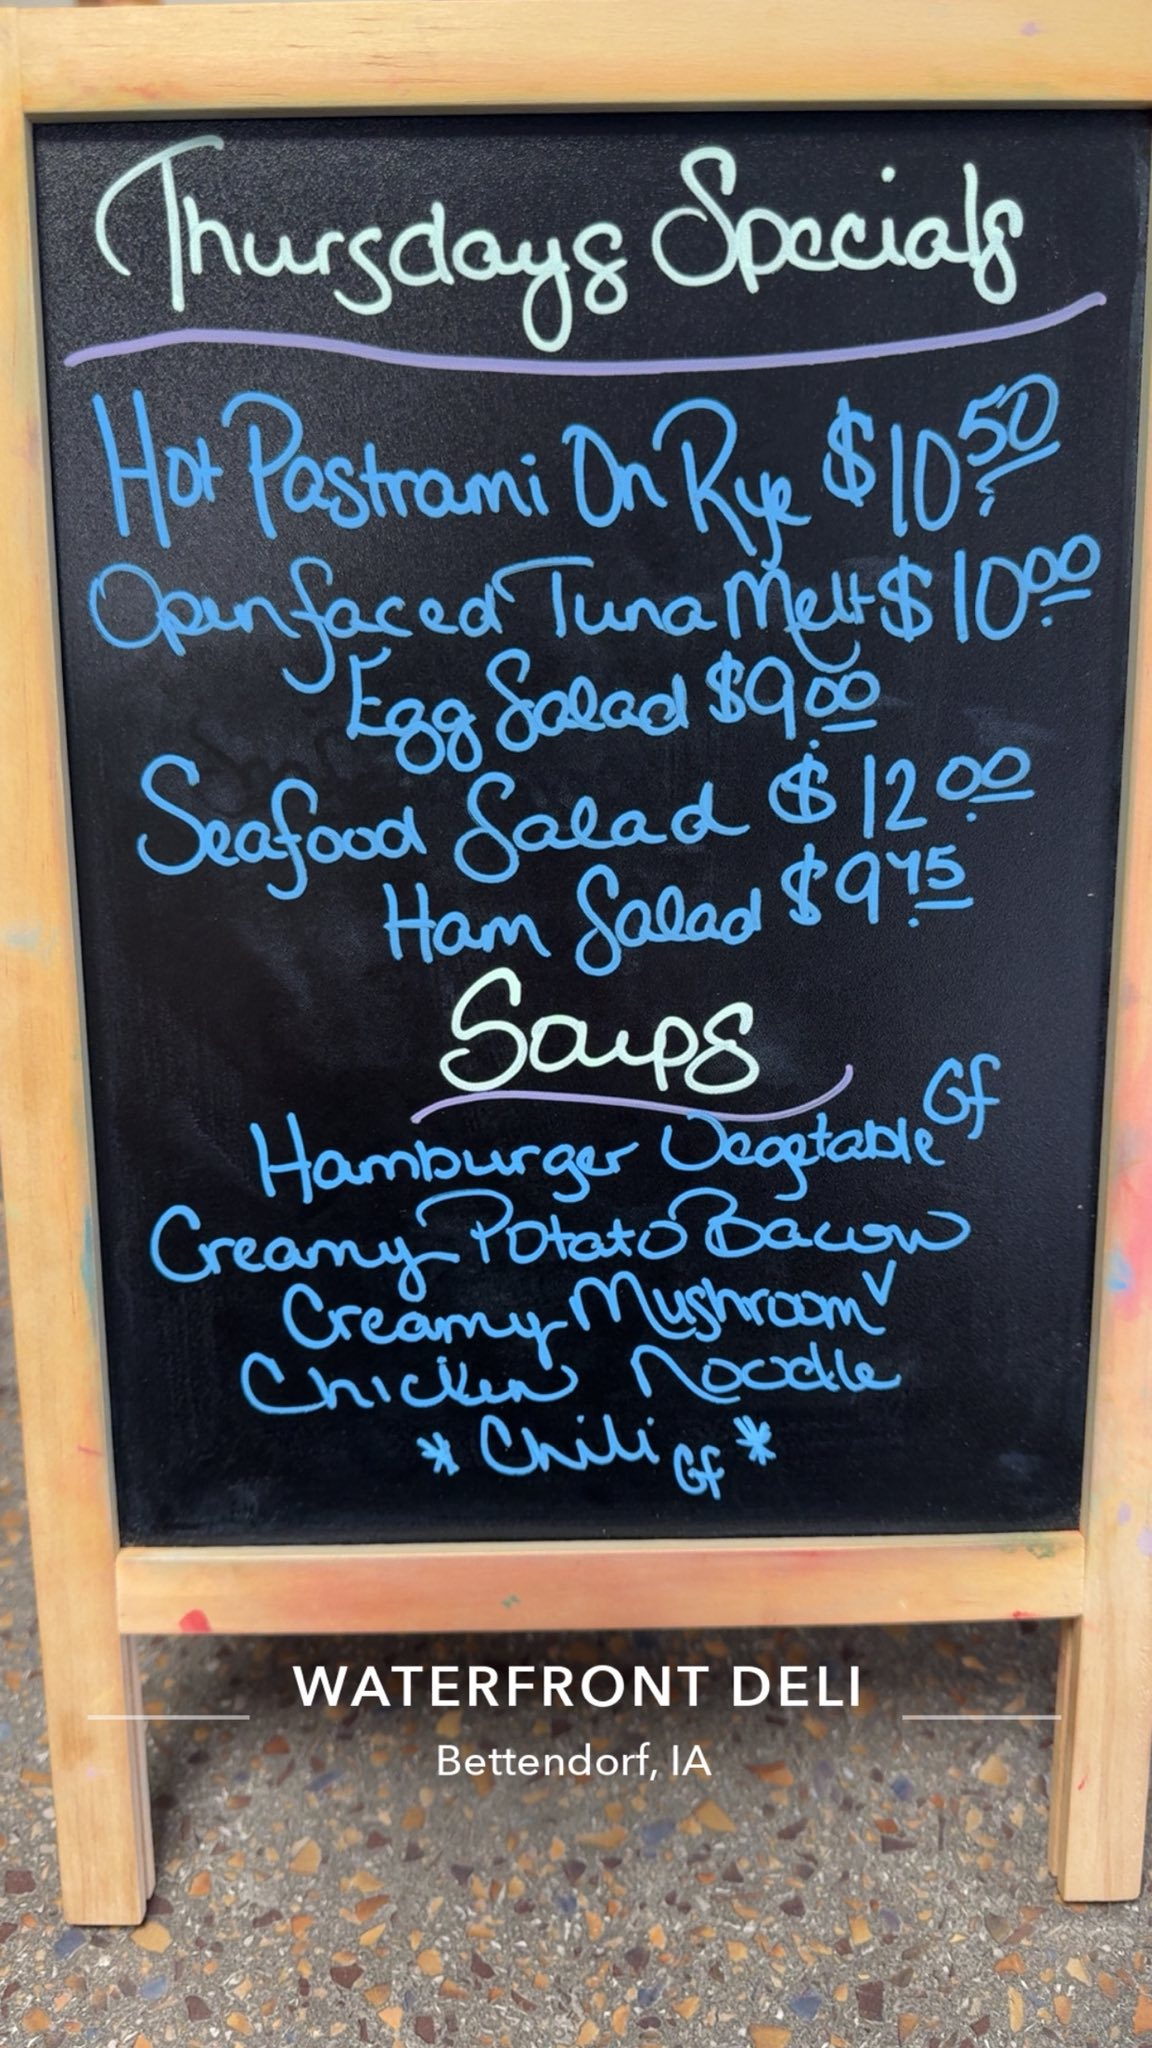 Thursdays Specials
Hot Pastrami On Rye $10.50
Openfaced Tuna Melt $10.00
Egg Salad $9.00
Seafood Salad $12.00
Ham Salad $9.75
Soups
Hamburger Vegetable Gf
Creamy Potato Bacon
Creamy Mushroom V
Chicken Noodle
* Chili Gf *
WATERFRONT DELI
Bettendorf, IA